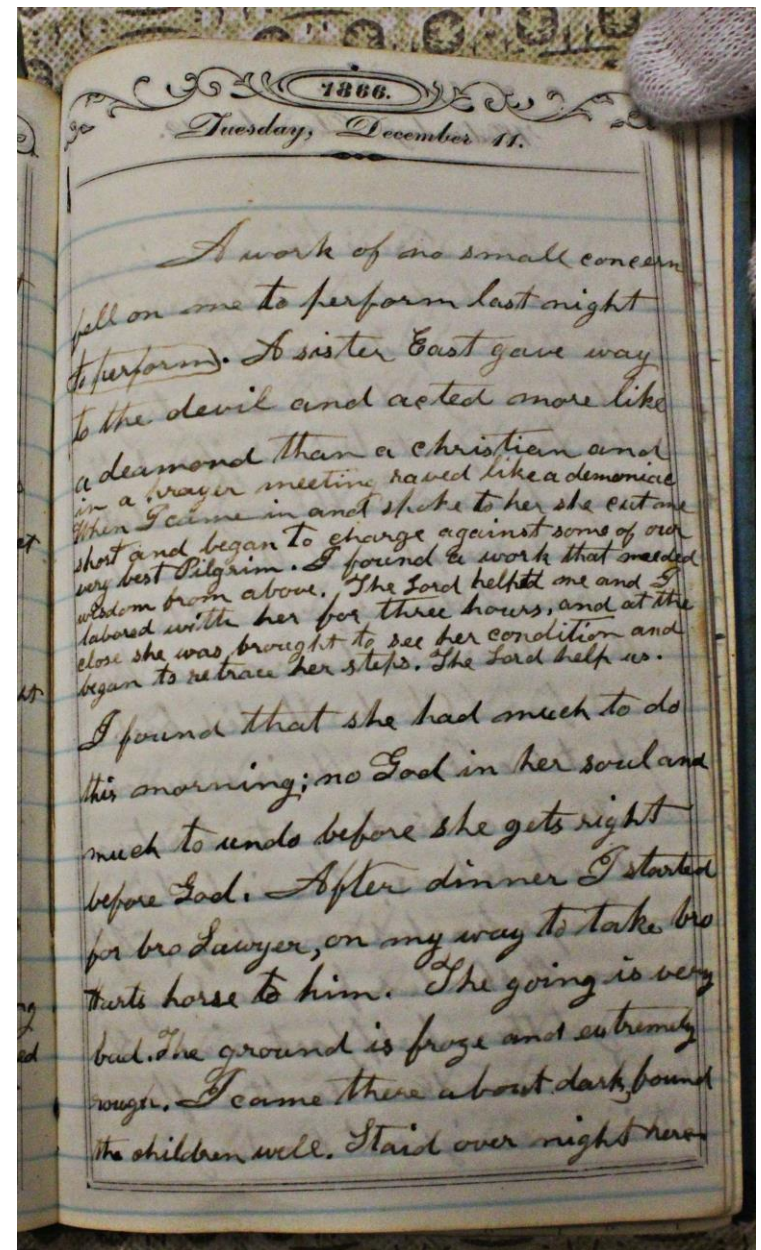 1866.
Tuesday, December 11.
A work of no small concern
fell on me to perform last night
to perform). A sister East gave way
to the devil and acted more like
a deamond than a christian and
in a prayer meeting raved like a demoniac
When I came in and spoke to her she cut me
short and began to charge against some of our
very best Pilgrim. I found a work that needed
wisdom from above. The Lord helped me and I
labored with her for three hours, and at the
close she was brought to see her condition and
began to retrace her steps. The Lord help us.
I found that she had much to do
this morning; no God in her soul and
much to undo before she gets right
before God. After dinner I started
for bro Lawyer, on my way to take bro
Hurts horse to him. The going is very
bad. The ground is froze and extremely
rough. I came there about dark, found
the children well. Staid over night here.